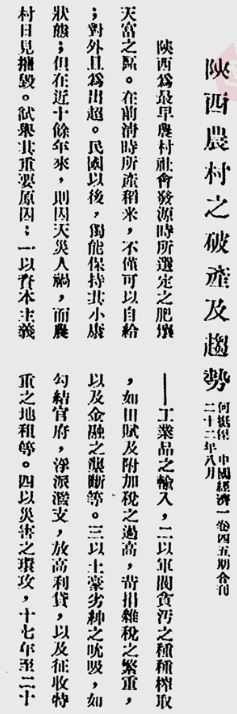 陝西農村之破產及趨勢
何挺傑　中國經濟一卷四五期合刊
二十二年八月
陝西爲最早農村社會發源時所選定之肥壤
天富之區。在前清時所產稻米，不僅可以自給
；對外且爲出超。民國以後，獨能保持其小康
狀態；但在近十餘年來，則因天災人禍，而農
村日見摧毀。試舉其重要原因：一以資本主義
——工業品之輸入，二以軍閥貪污之種種榨取
，如田賦及附加稅之過高，苛捐雜稅之繁重，
以及金融之壟斷等。三以土豪劣紳之吮吸，如
勾結官府，浮派濫支，放高利貸，以及征收特
重之地租等。四以災害之環攻，十七年至二十